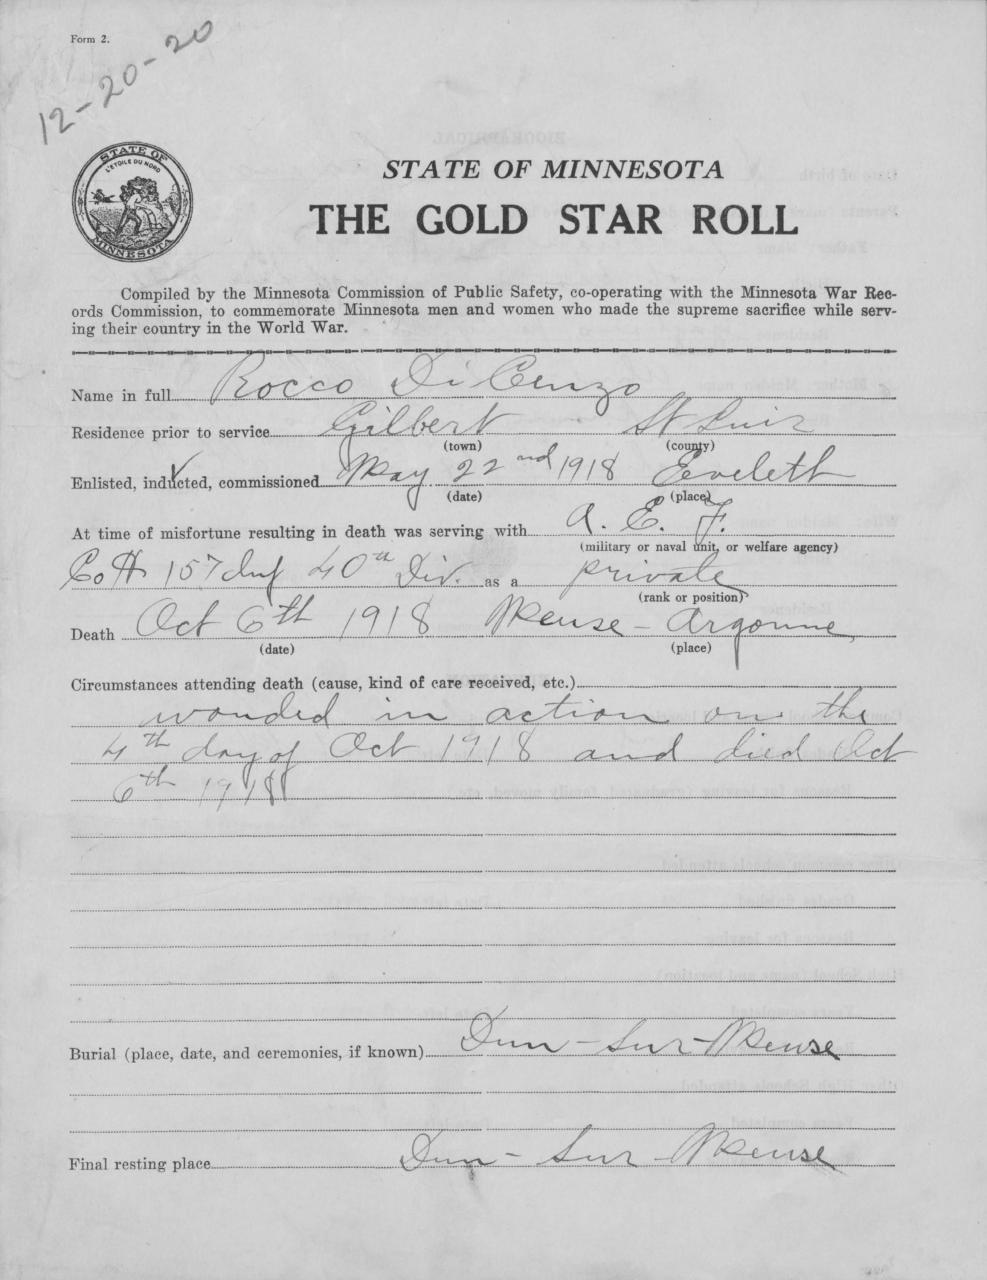 Form 2.
12-20-20
STATE OF
L'ETOILE DU NORD
MINNESOTA
STATE OF MINNESOTA
THE GOLD STAR ROLL
Compiled by the Minnesota Commission of Public Safety, co-operating with the Minnesota War Rec-
ords Commission, to commemorate Minnesota men and women who made the supreme sacrifice while serv-
ing their country in the World War.
Name in full Rocco DiCenzo
Residence prior to service Gilbert St Luis
(town) (county)
Enlisted, inducted, commissioned May 22nd 1918 Eveleth
(date) (place)
At time of misfortune resulting in death was serving with A. E. F.
(military or naval unit, or welfare agency)
Co H 157 Inf 40th Div. as a private
(rank or position)
Death Oct 6th 1918 Meuse-Argonne
(date) (place)
Circumstances attending death (cause, kind of care received, etc.)
wonded in action on the
4th day of Oct 1918 and died Oct
6th 1918
Burial (place, date, and ceremonies, if known) Dun-Sur-Meuse
Final resting place Dun-Sur-Meuse